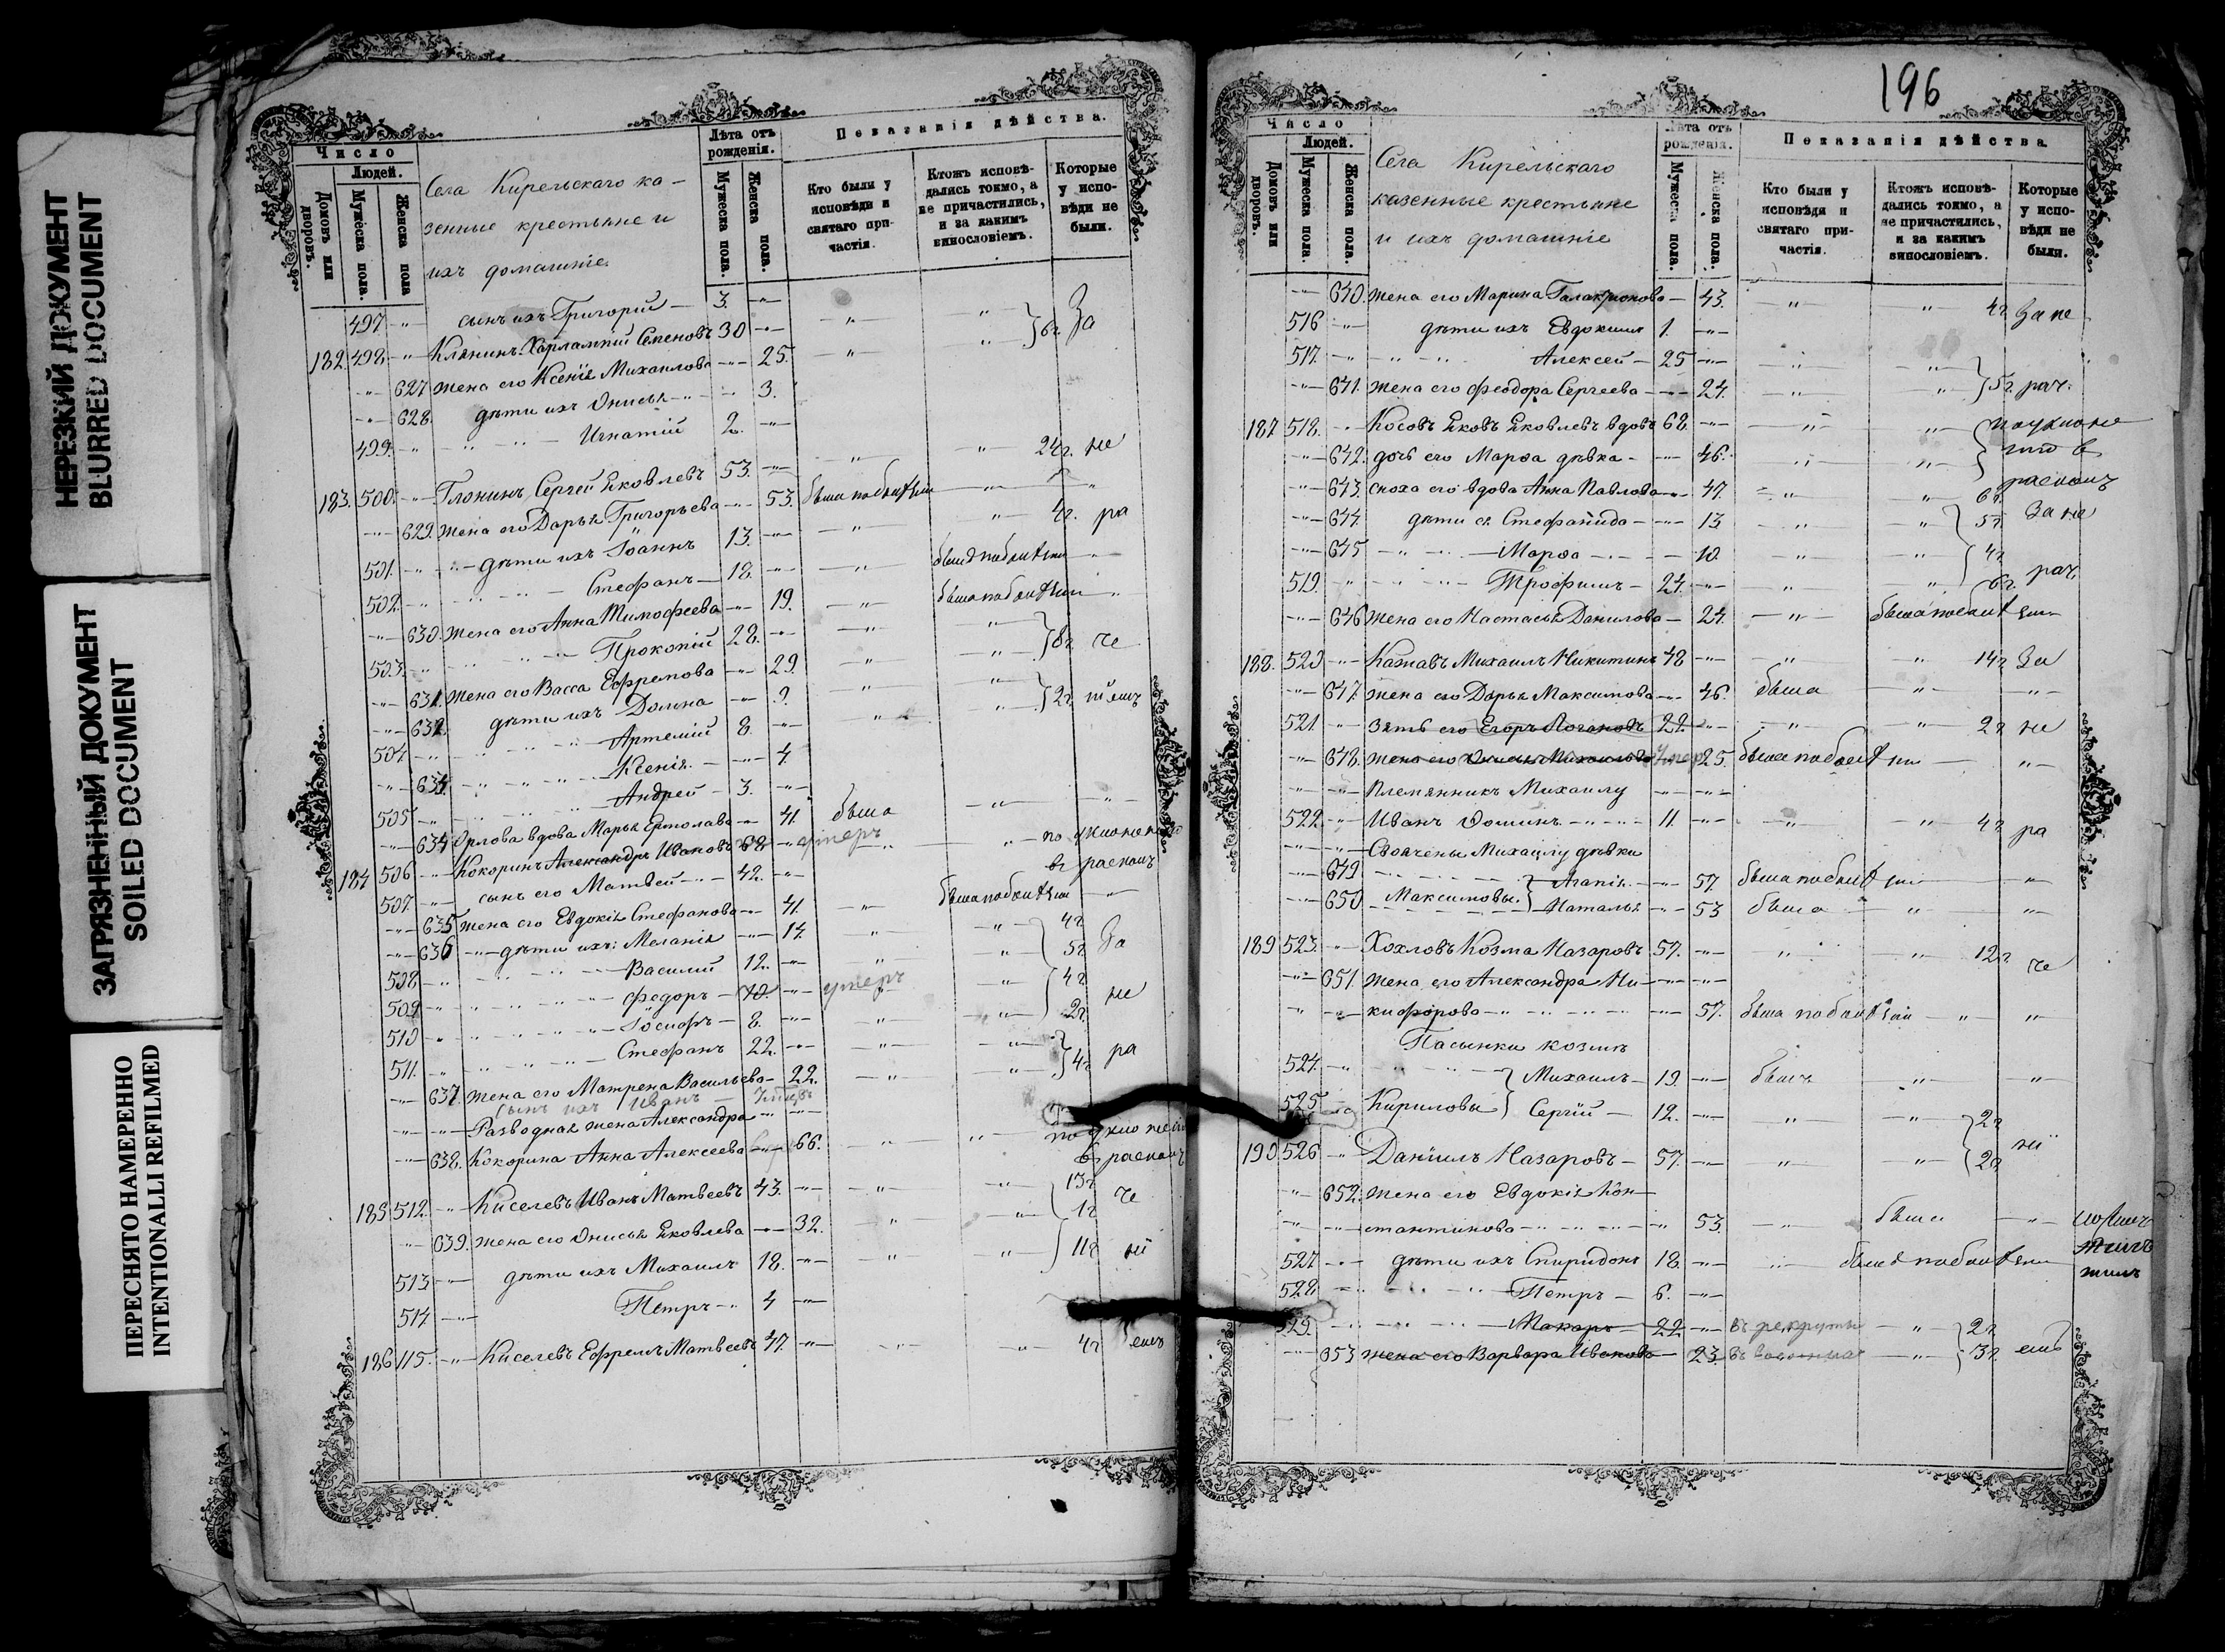 НЕРЕЗКИЙ ДОКУМЕНТ
BLURRED DOCUMENT
ЗАГРЯЗНЕННЫЙ ДОКУМЕНТ
SOILED DOCUMENT
ПЕРЕСНЯТО НАМЕРЕННО
INTENTIONALLI REFILMED
Число
Людей.
Домовъ или дворовъ.
Мужеска пола.
Женска пола
Села Кирельскаго ка-
зенные крестьяне и
ихъ домашніе
Лѣта отъ рожденія.
Мужеска пола.
Женска пола.
Показанія дѣйства.
Кто были у исповѣди и святаго при-частія.
Ктожъ исповѣ-дались токмо, а не причастились, и за какимъ винословіемъ.
Которые у испо-вѣди не были.
497 -"- сынъ ихъ Григорій - 3. -"-
182 498 -"- Клянинъ Харлампій Семеновъ 30 -"- } 6г. За
-"- 627 жена его Ксенія Михаилова -"- 25.
-"- 628. дѣти ихъ Онисья -"- 3.
499. -"- Игнатій 2. -"-
183. 500. -"- Глонинъ Сергей Яковлевъ 53. -"- 24г. не
-"- 629. жена его Дарья Григорьева -"- 53.
501. -"- дѣти ихъ Іоаннъ 13. -"- 4г. ра
502. -"- Стефанъ - 18. -"-
-"- 630. жена его Анна Тимофеева -"- 19.
503. -"- Прокопій 28. -"- } 8г. че
-"- 631. жена его Васса Ефремова -"- 29.
-"- 632. дѣти ихъ Домна -"- 9. } 2г.
504. -"- Артемій 8. -"-
-"- 633. Ксенія. -"- 4.
505 -"- Андрей - 3. -"-
-"- 634 Орлова вдова Марья Ермолаева -"- 41. быша
184 506 -"- Кокоринъ Александръ Ивановъ 68 умеръ
507. -"- сынъ его Матвей -"- 42. -"-
-"- 635 жена его Евдокія Стефанова -"- 41.
-"- 636 -"- дѣти ихъ: Меланія -"- 14. 4г.
508. -"- Василій 12. -"- 5г. За
509 -"- Федоръ - 10. -"- умеръ 4г.
510 -"- Іосифъ - 8. -"- 2г. не
511. -"- Стефанъ 22. -"-
-"- 637. жена его Матрена Васильева - 22. } 4г. ра
сынъ ихъ Иванъ
-"- Разводная жена Александра -"-
-"- 638. Кокорина Анна Алексеева -"- 66.
185 512. -"- Киселевъ Иванъ Матвеевъ 43. -"- 13г. че
-"- 639. жена его Онисья Яковлева -"- 32. 1г.
513 -"- дѣти ихъ Михаилъ 18. -"- 11г. нï
514 -"- Петръ -"- 4 -"-
186 115. -"- Киселевъ Ефремъ Матвеевъ 47. -"- 4г емъ
196
Число
Людей.
Домовъ или дворовъ.
Мужеска пола.
Женска пола.
Села Кирельскаго
казенные крестьяне
и ихъ домашніе
Лѣта отъ рожденія.
Мужеска пола.
Женска пола.
Показанія дѣйства
Кто были у исповѣди и святаго при-частія.
Ктожъ исповѣ-дались токмо, а не причастились, и за какимъ винословіемъ.
Которые у испо-вѣди не были.
-"- 640. жена его Марина Галактионова - 43. 4г. За не
516 -"- дѣти ихъ Евдокимъ 1 -"-
517. -"- Алексей - 25 -"-
-"- 641. жена его Феодора Сергеева -"- 24. } 5г. рач.
187 518. -"- Косовъ Яковъ Яковлевъ вдовъ 68 -"-
-"- 642. дочь его Марѳа дѣвка - -"- 46.
-"- 643. сноха его вдова Анна Павлова -"- 47. 6г.
-"- 644. дѣти ея Стефанида - -"- 13 5г. За не
-"- 645 -"- Марѳа -"- 10. 4г.
519. -"- Трофимъ - 24. -"- 6г. рач
-"- 646 жена его Настасья Данилова - 24.
188. 520 -"- Кажавъ Михаилъ Никитинъ 48 -"- 14г За
-"- 647. жена его Дарья Максимова -"- 46. быша
521. -"- Зять его Егоръ 22. -"- 2г не
-"- 648. жена его Онисья Михаилова умер 25.
-"- Племянникъ Михаилу -"-
522. -"- Иванъ Ѳоминъ -"- 11. -"- 4г ра
-"- Своячены Михаилу дѣвки
-"- 649 Агапія. -"- 57
-"- 650 Максимовы Наталья -"- 53 быша
189 523. -"- Хохловъ Козма Назаровъ 57. -"- 12г. че
-"- 651. жена его Александра Ни-
кифорова -"- 57.
Пасынки козмѣ
524. -"- Михаилъ - 19. -"- быша
525 Кириловы Сергїй - 12. -"- 2г.
190 526 -"- Даніилъ Назаровъ - 57. -"- 2г. нï
-"- 652. жена его Евдокія Кон-
стантинова -"- 53. быша
527. -"- дѣти ихъ Спиридонъ 18. -"-
528 -"- Петръ - 6. -"-
529. -"- Макаръ - 22 -"- въ рекруты 2г.
-"- 653 жена его Варвара Иванова - 23. 3г. емъ